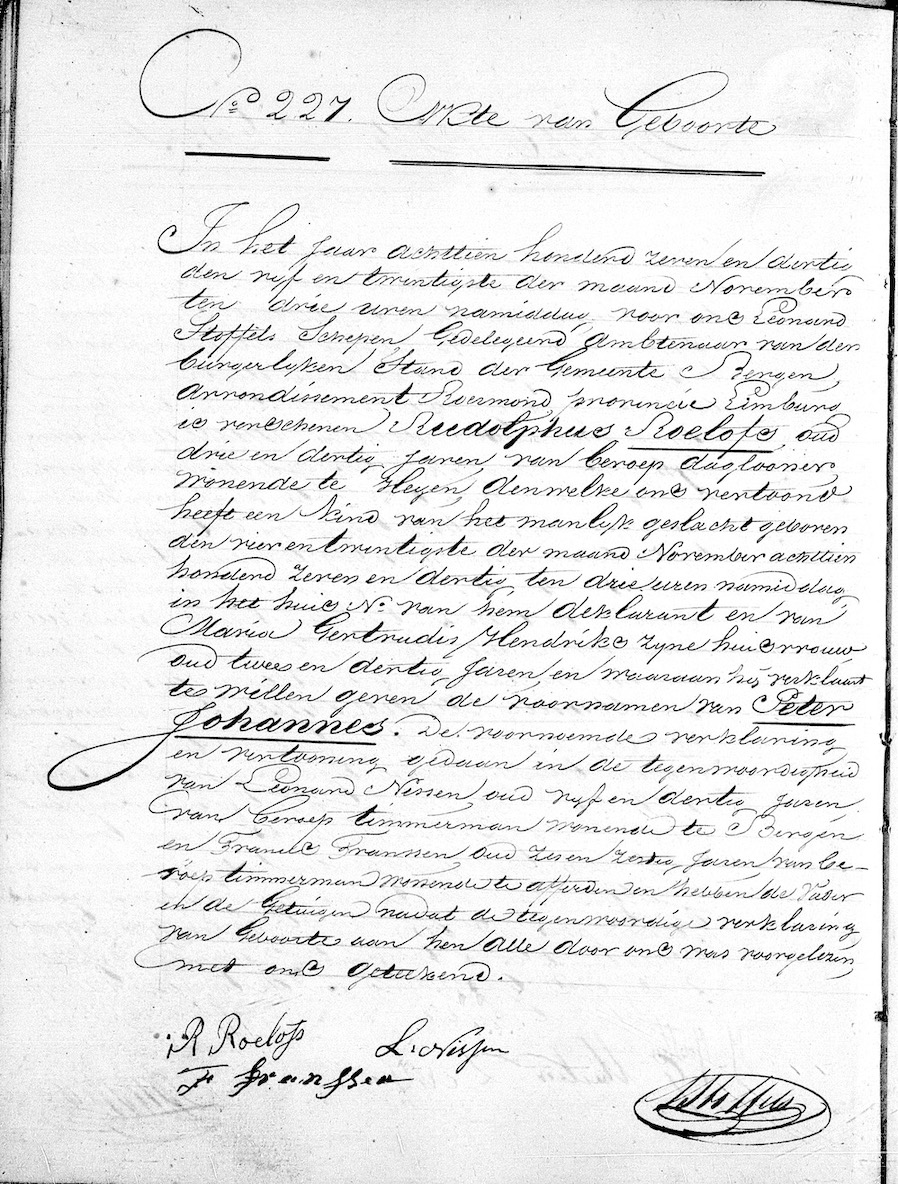 No 227. Akte van Geboorte
In het Jaar achttien honderd zeven en dertig
den vyf en twintigste der maand November
ten drie uren namiddag, voor ons Leonard
Stoffels Schepen, Gedelegeerd Ambtenaar van der
burgerlyken Stand der Gemeente Bergen,
Arrondissement Roermond, provincie Limburg
is verschenen Rudolphus Roelofs, oud
drie en dertig Jaren, van beroep daglooner,
wonende te Heyen, denwelke ons vertoond
heeft een kind van het manlyk geslacht geboren
den vier en twintigste der maand November achttien
honderd zeven en dertig, ten drie uren namiddag,
in het huis No van hem deklarant en van
Maria Gertrudis Hendriks zyne huisvrouw
oud twee en dertig Jaren, en waaraan hij verklaart
te willen geven de voornamen van Peter
Johannes. De voornoemde verklaring
en vertooning gedaan in de tegenwoordigheid
van Leonard Nissen, oud vyf en dertig Jaren,
van beroep timmerman wonende te Bergen
en Francis Franssen, oud zes en zestig Jaren van be-
roep timmerman wonende te Afferden en hebben de Vader
en de Getuigen nadat de tegenwoordige verklaring
van Geboorte aan hen alle door ons was voorgelezen,
met ons geteekend.
R Roelofs L. Nissen
F Franssen